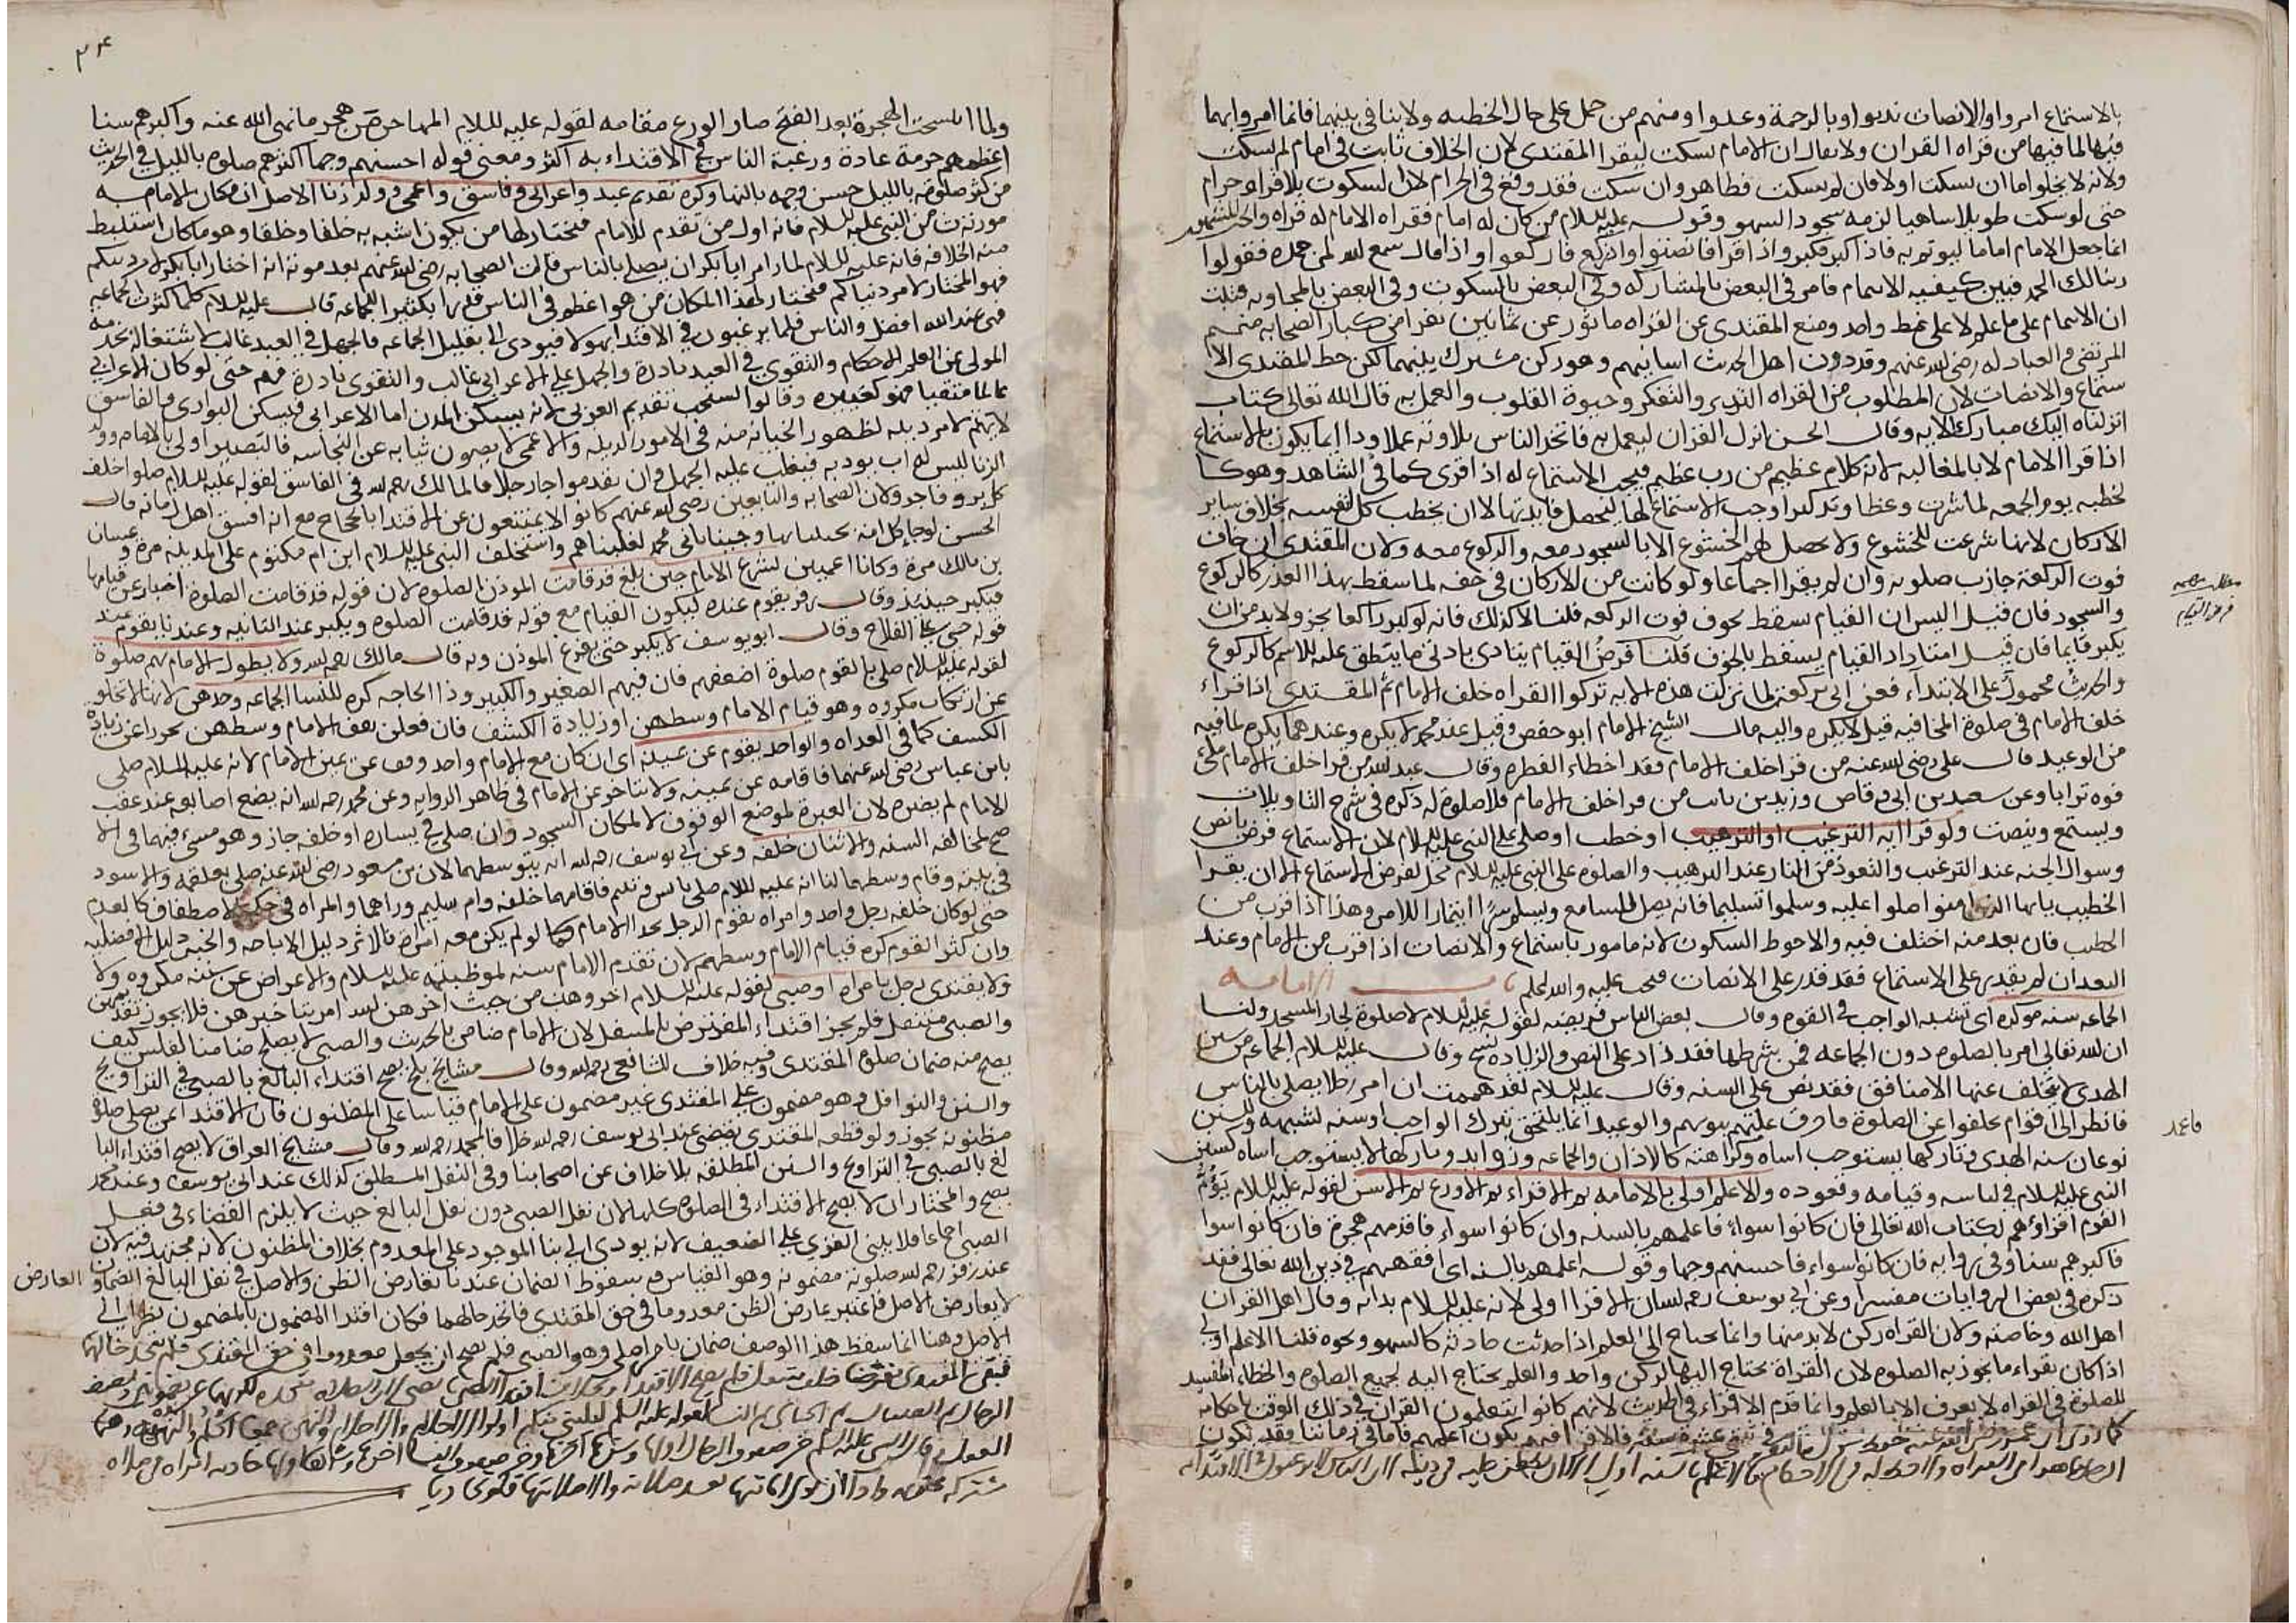 بالاستماع امروا والانصات ندبوا وبالرحمة وعدوا ومنهم من حمل على حال الخطبه ولا ينافي بينهما فانما امروا بهما
فيها لما فيها من قراه القران ولا يقال ان الامام يسكت ليقرا المقتدى لان الخلاف ثابت في امام لم يسكت
ولانه لا يخلوا اما ان يسكت اولا فان لم يسكت فظاهر وان سكت فقد وقع في الحرام لان السكوت بلا قراه حرام
حتى لو سكت طويلا ساهيا لزمه سجود السهو وقوله عليه السلام من كان له امام فقراه الامام له قراه
انما جعل الامام اماما ليوتم به فاذا كبر فكبروا واذا قرا فانصتوا واذا ركع فاركعوا واذا قال سمع الله لمن حمده فقولوا
ربنا لك الحمد فبين كيفيه الايتمام فامر في البعض بالمشاركه وفي البعض بالسكوت وفي البعض بالمجاوبه
ان الايتمام على ما علم لا على نمط واحد ومنع المقتدى عن القراه ماثور عن ثمانين نفرا من كبار الصحابه منهم
المرتضى والعبادله رضى الله عنهم وقد دون اهل الحديث اساميهم وهو ركن مشترك بينهما لكن حظ المقتدى الا
ستماع والانصات لان المطلوب من القراه التدبر والتفكر وحيوة القلوب والعمل به قال الله تعالى كتاب
انزلناه اليك مبارك الايه وقال الحسن انزل القران ليعمل به فاتخذ الناس تلاوته عملا وذا انما يكون بالاستماع
اذا قرا الامام لا بالمغالبه لانه كلام عظيم من رب عظيم فيجب الاستماع له اذا قرى كما في الشاهد وهو كا
لخطبه يوم الجمعه لما شرت وعظا وتذكيرا وجب الاستماع لها ليحصل فايدتها لا ان يخطب كل لنفسه بخلاف ساير
الاركان لانها شرعت للخشوع ولا يحصل لهم الخشوع الا بالسجود معه والركوع معه ولان المقتدى ان خاف
فوت الركعة جازت صلوته وان لم يقرا اجماعا ولو كانت من الاركان في حقه لما سقط بهذا العذر كالركوع
والسجود فان قيل اليس ان القيام يسقط بخوف فوت الركعه قلنا لا كذلك فانه لو كبر راكعا لم يجز ولا بد من ان
يكبر قايما فان قيل امتداد القيام يسقط بالخوف قلنا فرض القيام يتادى بادنى ما ينطلق عليه الاسم كالركوع
والحديث محمول على الابتداء فعن ابى بن كعب لما نزلت هذه الايه تركوا القراه خلف الامام ثم المقتدى اذا قراء
خلف الامام في صلوة المخافته قيل لا يكره واليه مال الشيخ الامام ابو حفص وقيل عند محمد لا يكره وعندهما يكره لما فيه
من الوعيد قال على رضى الله عنه من قرا خلف الامام فقد اخطاء الفطره وقال عبد الله من قرا خلف الامام ملئ
فوه ترابا وعن سعد بن ابى وقاص وزيد بن ثابت من قرا خلف الامام فلا صلوة له ذكره في شرح التاويلات
ويستمع وينصت ولو قرا ايه الترغيب او الترهيب او خطب او صلى على النبى عليه السلام لان الاستماع فرض بالنص
وسوال الجنه عند الترغيب والتعوذ من النار عند الترهيب والصلوه على النبى عليه السلام مخل لفرض الاستماع الا ان يقرا
الخطيب يايها الذين امنوا صلوا عليه وسلموا تسليما فانه يصلى السامع ويسلم سرا ايتمارا للامر وهذا اذا قرب من
الخطيب فان بعد منه اختلف فيه والاحوط السكوت لانه مامور باستماع والانصات اذا قرب من الامام وعند
البعد ان لم يقدر على الاستماع فقد قدر على الانصات فيجب عليه والله اعلم باب الامامه
الجماعه سنه موكده اى تشبه الواجب في القوه وقال بعض الناس فريضه لقوله عليه السلام لا صلوة لجار المسجد ولنا
ان الله تعالى امر بالصلوه دون الجماعه فمن شرطها فقد زاد على النص والزياده نسخ وقال عليه السلام الجماعه من سنن
الهدى لا يتخلف عنها الا منافق فقد نص على السنه وقال عليه السلام لقد هممت ان امر رجلا يصلى بالناس
فانظر الى اقوام تخلفوا عن الصلوة فاحرق عليهم بيوتهم والوعيد انما يلتحق بترك الواجب او سنه تشبهه والسنن
نوعان سنه الهدى وتاركها يستوجب اساه وكراهته كالاذان والجماعه وزوايد وتاركها لا يستوجب اساه كسنن
النبى عليه السلام في لباسه وقيامه وقعوده والاعلم اولى بالامامه ثم الاقراء ثم الاورع ثم الاسن لقوله عليه السلام يؤم
القوم اقراؤهم لكتاب الله تعالى فان كانوا سواء فاعلمهم بالسنه وان كانوا سواء فاقدمهم هجرة فان كانوا سوا
فاكبرهم سنا وفي روايه فان كانوا سواء فاحسنهم وجها وقوله اعلمهم بالسنه اى افقههم في دين الله تعالى فقد
ذكره في بعض الروايات مفسرا وعن ابى يوسف رحمه الله ان الاقرا اولى لانه عليه السلام بدا به وقال اهل القران
اهل الله وخاصته ولان القراه ركن لا بد منها وانما يحتاج الى العلم اذا حدثت حادثه كالسهو ونحوه قلنا الاعلم اولى
اذا كان يقراء ما يجوز به الصلوه لان القراة يحتاج اليها لركن واحد والعلم يحتاج اليه لجميع الصلوه والخطاء المفسد
للصلوة في القراه لا يعرف الا بالعلم وانما قدم الاقراء في الحديث لانهم كانوا يتعلمون القران في ذلك الوقت باحكامه
كما روى ان عمر رضى الله عنه حفظ سورة البقرة في ثنتى عشرة سنة فالاقرا فيهم يكون اعلمهم فاما في زماننا فقد يكون
مطلب
فرض القيام
فاعد
٣٤
ولما انتسخت الهجرة بعد الفتح صار الورع مقامه لقوله عليه السلام المهاجر من هجر ما نهى الله عنه واكبرهم سنا
اعظمهم حرمة عادة ورغبة الناس في الاقتداء به اكثر ومعنى قوله احسنهم وجها اكثرهم صلوه بالليل في الحديث
من كثر صلوته بالليل حسن وجهه بالنهار وكره تقديم عبد واعرابى وفاسق واعمى وولد زنا الاصل ان مكان الامامه
مورثه من النبى عليه السلام فانه اول من تقدم للامام فيختار لها من يكون اشبه به خلقا وخلقا وهو مكان استنبط
منه الخلافه فانه عليه السلام لما امر ابا بكر ان يصلى بالناس قالت الصحابه رضى الله عنهم بعد موته انه اختار ابا بكر لامر دينكم
فهو المختار لامر دنياكم فيختار لهذا المكان من هو اعظم في الناس قدرها تكثيرا للجماعه قال عليه السلام كلما كثرت الجماعه
فهى عند الله افضل والناس قلما يرغبون في الاقتدا بهولا فيودى الى تقليل الجماعه فالجهل في العبد غالب لاشتغاله بخدمه
المولى عن العلم بالاحكام والتقوى في العبد نادرة والجهل على الاعرابى غالب والتقوى نادرة فيهم حتى لو كان الاعرابى
عالما متقيا فهو كغيره وقالوا المستحب تقديم العربى لانه يسكن المدن اما الاعرابى فيسكن البوادى والفاسق
لا يهتم لامر دينه لظهور الخيانه منه في الامور الدينيه والاعمى لا يصون ثيابه عن النجاسه فالبصير اولى بالامام وولد
الزنا ليس له اب يودبه فيغلب عليه الجهل وان تقدموا جاز خلافا لمالك رحمه الله في الفاسق لقوله عليه السلام صلوا خلف
كل بر وفاجر ولان الصحابه والتابعين رضى الله عنهم كانوا لا يمتنعون عن الاقتدا بالحجاج مع انه افسق اهل زمانه قال
الحسن لو جا كل امه بخبيثاتها وجينا بابى محمد لغلبناهم واستخلف النبى عليه السلام ابن ام مكتوم على المدينه مرة وعتبان
بن مالك مرة وكانا اعميين لشرع الامام حين بلغ قد قامت الموذن الصلوه لان قوله قد قامت الصلوة اخبار عن قيامها
فيكبر حينئذ وقال زفر يقوم عنده ليكون القيام مع قوله قد قامت الصلوه ويكبر عند الثانيه وعندنا يقوم عند
قوله حى على الفلاح وقال ابو يوسف لا يكبر حتى يفرغ الموذن وبه قال مالك رحمه الله ولا يطول الامام بهم صلوة
لقوله عليه السلام صل بالقوم صلوة اضعفهم فان فيهم الصغير والكبير وذا الحاجه كره للنسا الجماعه وحدهن لانها لا تخلو
عن ارتكاب مكروه وهو قيام الامام وسطهن او زيادة الكشف فان فعلن يقف الامام وسطهن تحرزا عن زيادة
الكشف كما في العراه والواحد يقوم عن يمينه اى ان كان مع الامام واحد وقف عن يمين الامام لانه عليه السلام صلى
بابن عباس رضى الله عنهما فاقامه عن يمينه ولا يتاخر عن الامام في ظاهر الروايه وعن محمد رحمه الله انه يضع اصابعه عند عقب
الامام لم يضره لان العبرة لموضع الوقوف لا لمكان السجود وان صلى في يساره او خلفه جاز وهو مسئ فيهما في الا
صح لمخالفه السنه والاثنان خلفه وعن ابى يوسف رحمه الله انه يتوسطهما لان بن مسعود رضى الله عنه صلى بعلقمه والاسود
في بيته وقام وسطهما لنا انه عليه السلام صلى بانس ويتيم فاقامهما خلفه وام سليم وراهما والمراه في حكم الاصطفاف كالعدم
حتى لو كان خلفه رجل واحد وامراه يقوم الرجل بحذا الامام كما لو لم يكن معه امراه فالاثر دليل الاباحه والخبر دليل الافضليه
وان كثر القوم كره قيام الامام وسطهم لان تقدم الامام سنه لمواظبته عليه السلام والاعراض عن سنته مكروه ولا
ولا يقتدى رجل بامراه او صبى لقوله عليه السلام اخروهن من حيث اخرهن الله امر بتاخيرهن فلا يجوز تقديمهن
والصبى متنفل فلم يجز اقتداء المفترض بالمتنفل لان الامام ضامن بالحديث والصبى لا يصلح ضامنا لفلس كيف
يصح منه ضمان صلوة المقتدى وفيه خلاف للشافعى رحمه الله وقال مشايخ بلخ يصح اقتداء البالغ بالصبى في التراويح
والسنن والنوافل وهو مضمون على المقتدى غير مضمون على الامام قياسا على المظنون فان الاقتدا بمن يصلى صلوة
مظنونه يجوز ولو قطعه المقتدى يقضى عند ابى يوسف رحمه الله خلافا لمحمد رحمه الله وقال مشايخ العراق لا يصح اقتداء البا
لغ بالصبى في التراويح والسنن المطلقه بلا خلاف عن اصحابنا وفي النفل المطلق كذلك عند ابى يوسف وعند محمد
يصح والمختار ان لا يصح الاقتداء في الصلوه كلها لان نفل الصبى دون نفل البالغ حيث لا يلزم القضاء في فعل
الصبى اجماعا فلا يبنى القوى على الضعيف لانه يودى الى بنا الموجود على المعدوم بخلاف المظنون لانه مجتهد فيه لان
عند زفر رحمه الله صلوته مضمونه وهو القياس وسقوط الضمان عندنا بعارض الظن والاصل في نفل البالغ الضمان
العارض
لا يعارض الاصل فاعتبر عارض الظن معدوما في حق المقتدى فاتحد حالهما فكان اقتدا المضمون بالمضمون نظرا الى
الاصل وهنا انما سقط هذا الوصف ضمان بامر اصلى وهو الصبى فلم يصح ان يجعل معدوما في حق المقتدى فلم يتحد حالهما